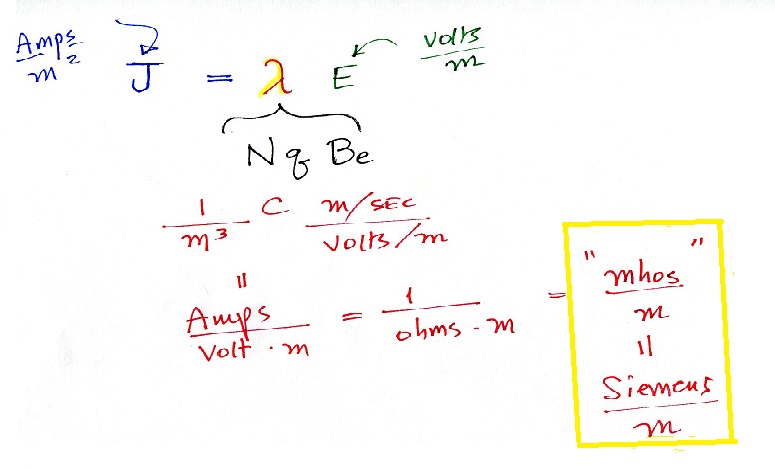 Amps/m² J = λ E volts/m
N q Be
1/m³ C m/sec / volts/m
=
Amps/Volt · m = 1/ohms · m = "mhos/m"
=
Siemens/m